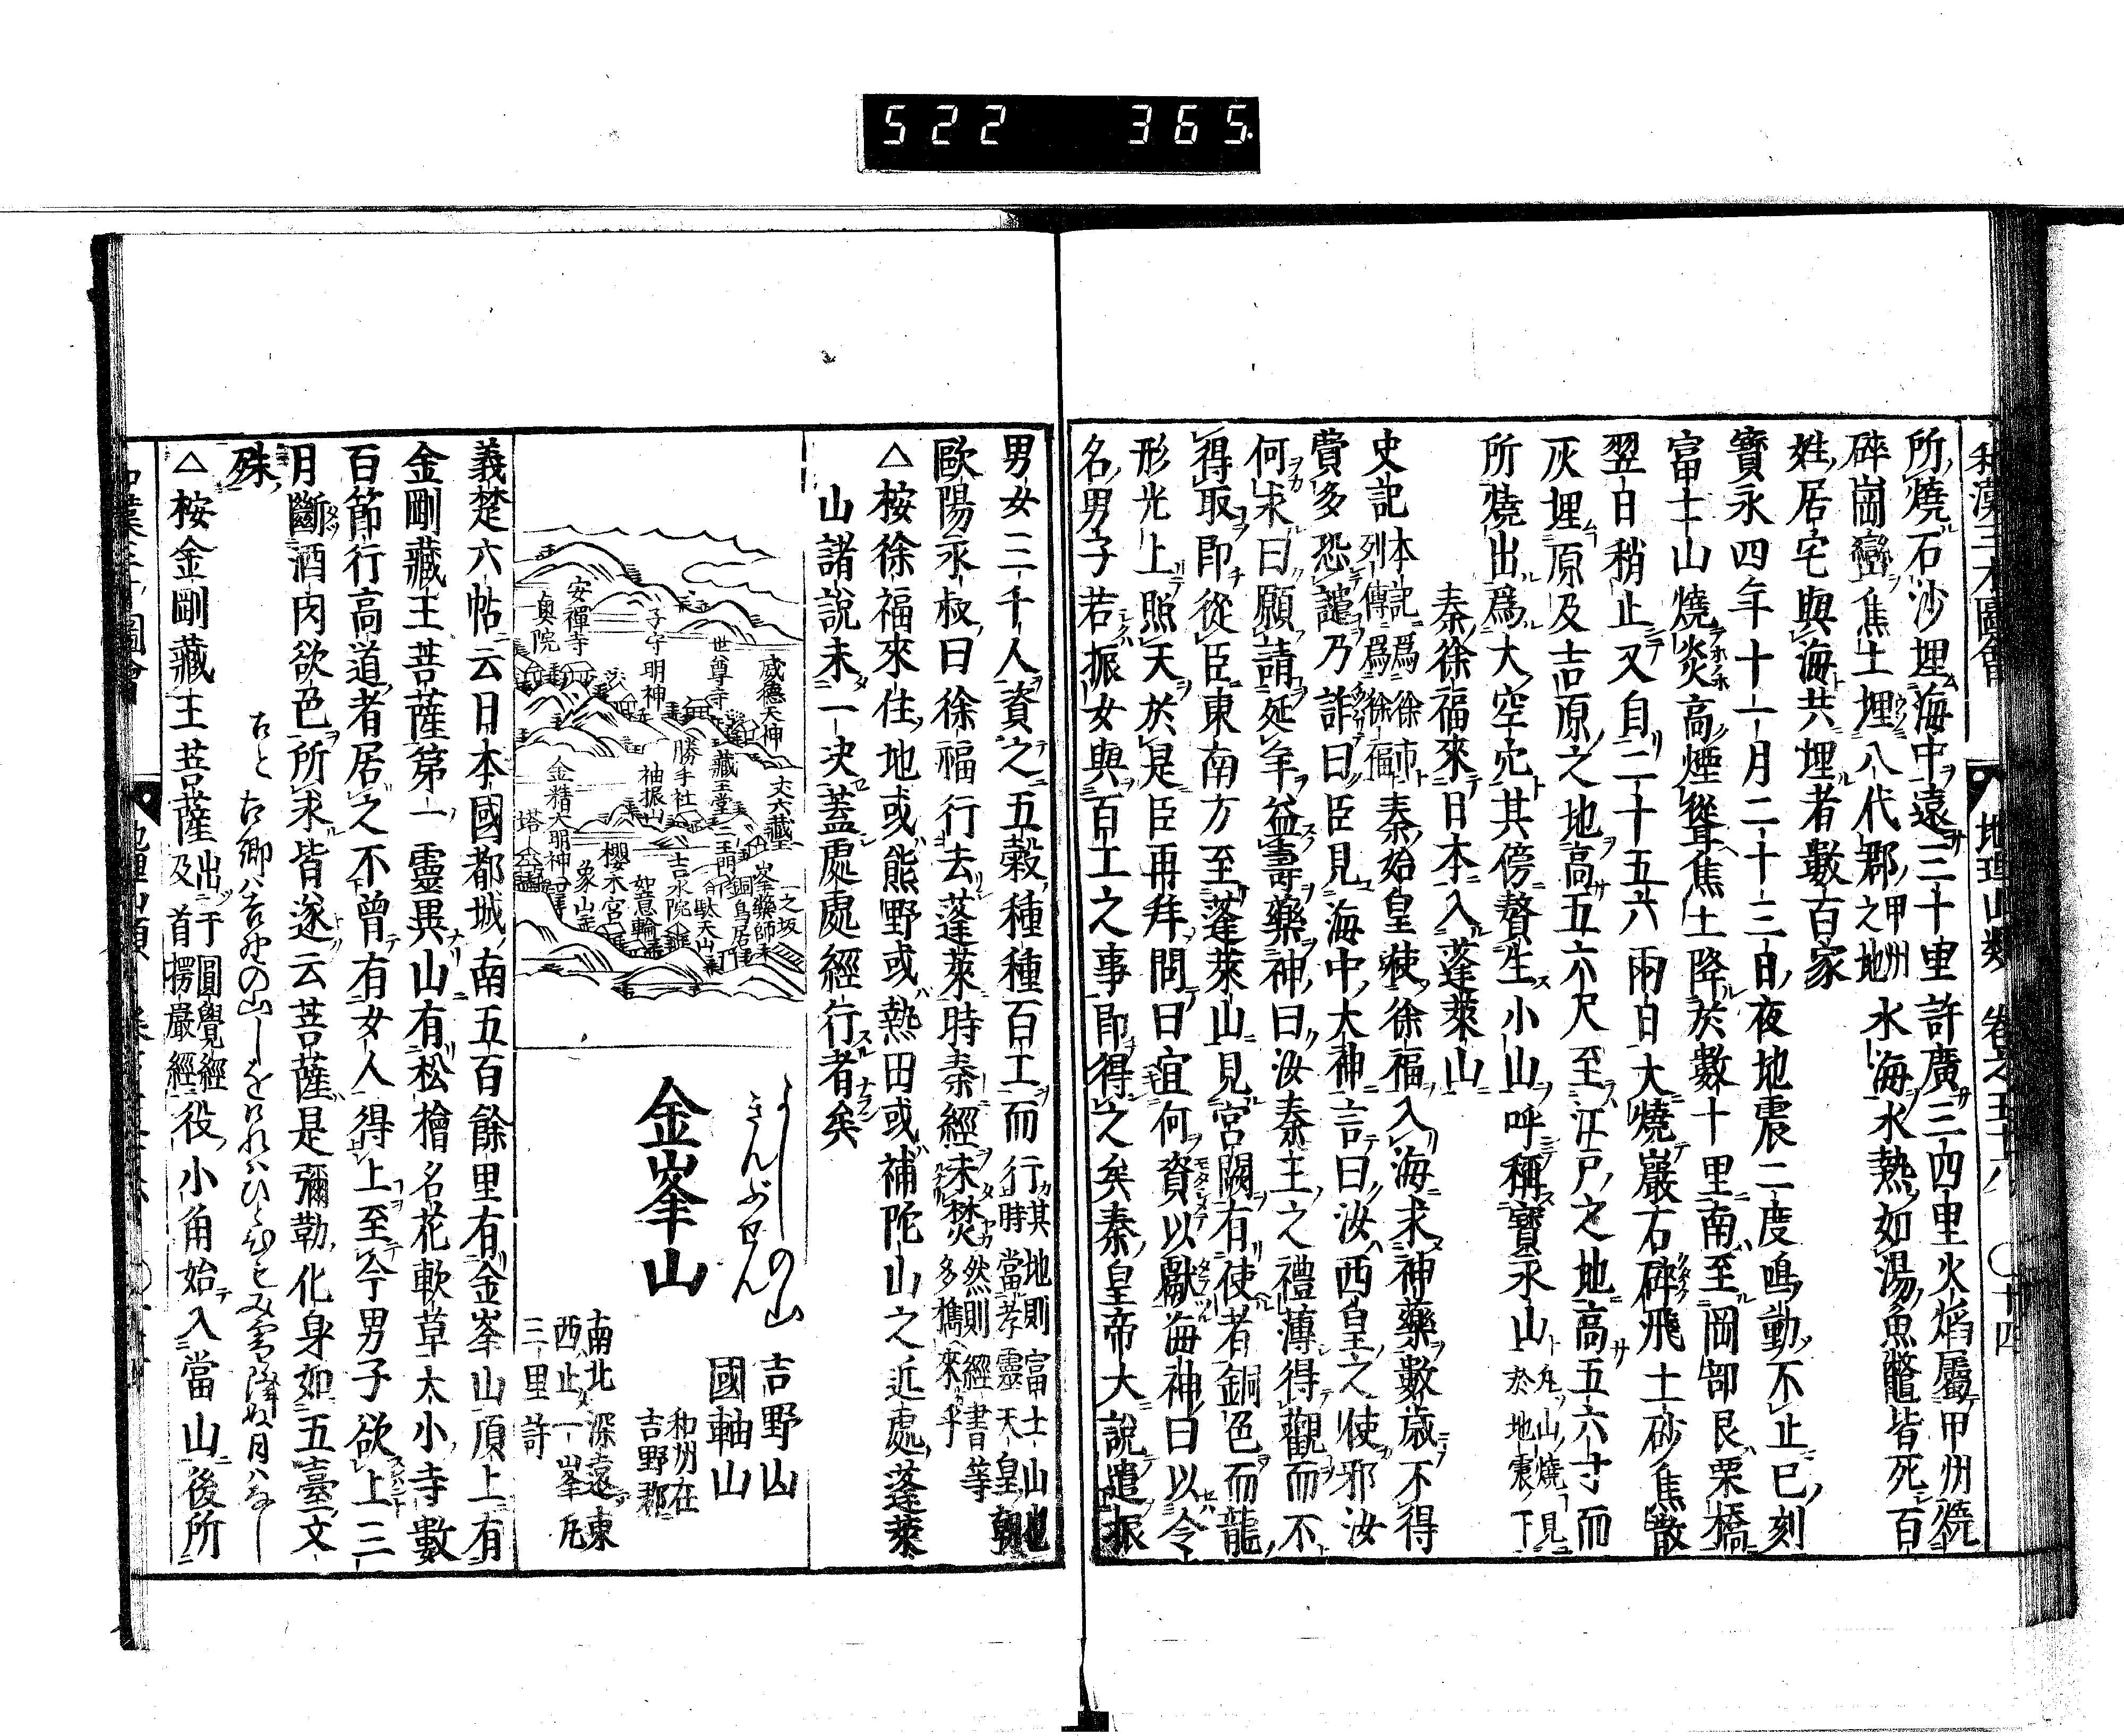 522 365
和漢三才圖會 地理山類 卷之五十六 ○十四
所燒石沙埋海中遠三十里許廣三四里火焰屬甲州燒
碎崗巒焦土埋八代郡甲州之地水海水熱如湯魚鼈皆死百
姓居宅與海共埋者數百家
寶永四年十一月二十三日夜地震二度鳴動不止巳刻
富士山燒炎高煙聳焦土降於數十里南至岡部艮栗橋
翌日稍止又自二十五六兩日大燒巖石碎飛土砂焦散
灰埋原及吉原之地高五六尺至江戸之地高五六寸而
所燒出爲大空穴其傍贅生小山呼稱寶永山凡山燒見於地震下
秦徐福來日本入蓬萊山
史記本記爲徐市列傳爲徐福秦始皇使徐福入海求神藥數歳不得
費多恐譴乃詐曰臣見海中大神言曰汝西皇之使邪汝
何求曰願請延年益壽藥神曰汝秦王之禮薄得觀而不
得取即從臣東南方至蓬萊山見宮闕有使者銅色而龍
形光上照天於是臣再拜問曰宜何資以獻海神曰以令
名男子若振女與百工之事即得之矣秦皇帝大說遣振
男女三千人資之五穀種種百工而行其地則富士山也行時當孝靈天皇朝
歐陽永叔曰徐福行去蓬萊時秦經未焚然則經書等多攜來乎
△按徐福來住地或熊野或熱田或補陀山之近處蓬萊
山諸說未一决蓋處處經行者矣
安禪寺
奥院
子守明神
世尊寺
威德天神
藏王堂
丈六藏王
勝手社
袖振山
金精大明神
塔
二王門
銅鳥居
峯藥師
一之坂
吉水院
駄天山
櫻本宮
如意輪
象山
よしのの山
きんぶせん
金峯山
吉野山
國軸山
和州在吉野郡
南北深遠東西止一峯凡三里許
義楚六帖云日本國都城南五百餘里有金峯山頂上有
金剛藏王菩薩第一靈異山有松檜名花軟草大小寺數
百節行高道者居之不曾有女人得上至今男子欲上三
月斷酒肉欲色所求皆遂云菩薩是彌勒化身如五臺文
殊
△按金剛藏王菩薩出于圓覺經及首楞嚴經役小角始入當山後所